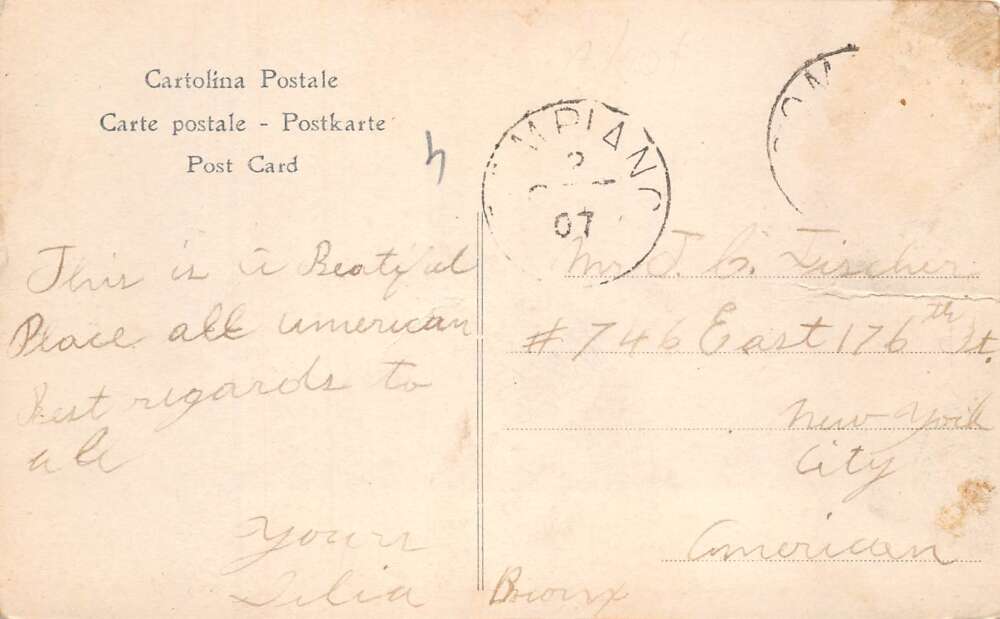 Cartolina Postale
Carte postale - Postkarte
Post Card
4
MPIANO
2
07
OM
This is a Beatiful
Place all american
Best regards to
all
Yours
Lilia
Mr J. C. Fischer
# 746 East 176th St.
New York
City
American
Bronx